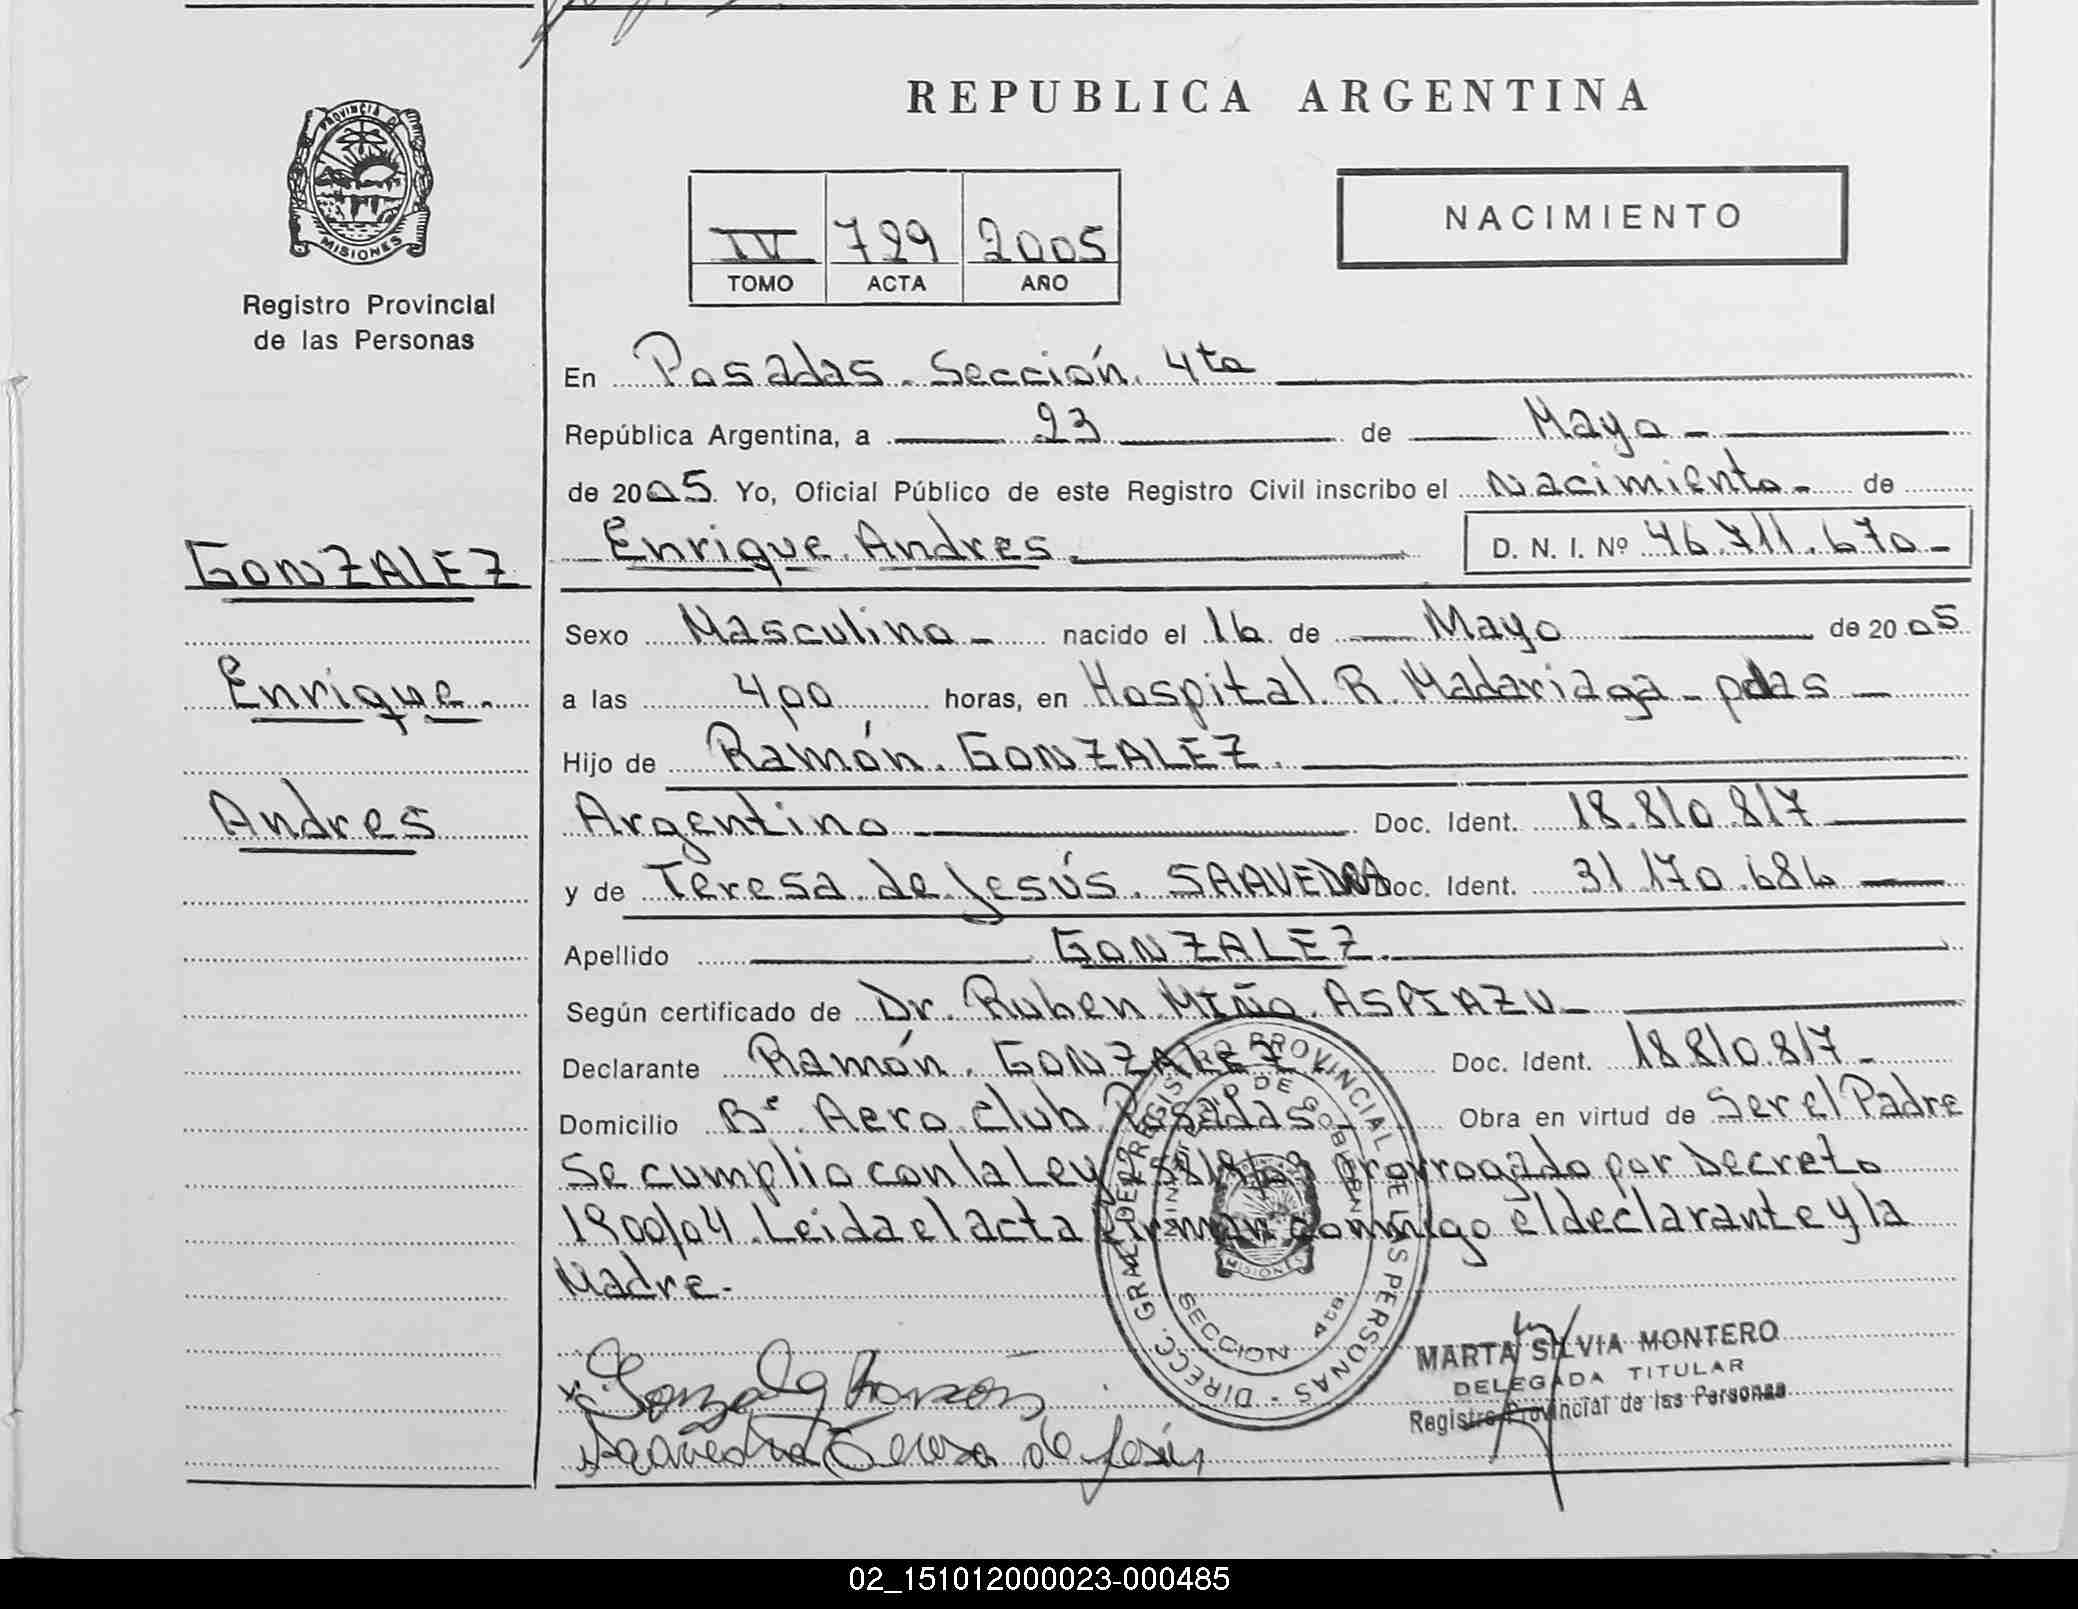 REPUBLICA ARGENTINA
PROVINCIA DE
MISIONES
Registro Provincial
de las Personas
IV 729 2005
TOMO ACTA AÑO
NACIMIENTO
En Posadas. Sección. 4ta
República Argentina, a 23 de Mayo
de 2005. Yo, Oficial Público de este Registro Civil inscribo el Nacimiento de
Enrique Andres. D. N. I. Nº 46.711.670
GONZALEZ
Enrique.
Andres
Sexo Masculino nacido el 16 de Mayo de 2005
a las 4,00 horas, en Hospital R. Madariaga - pdas
Hijo de Ramón. GONZALEZ.
Argentino Doc. Ident. 18.810.817
y de Teresa de Jesús. SAAVEDRA Doc. Ident. 31.170.686
Apellido GONZALEZ.
Según certificado de Dr. Ruben MIÑO ASPIAZU
Declarante Ramón. GONZALEZ Doc. Ident. 18.810.817
Domicilio Bº. Aero club Posadas. Obra en virtud de Ser el Padre
Se cumplio con la Ley prorrogado por Decreto
1900/04. Leida el acta Firman conmigo el declarante y la
Madre.
DIRECC. GRAL DE REGISTRO PROVINCIAL DE LAS PERSONAS
MINISTERIO DE GOBIERNO
MISIONES
SECCION 4ta
Gonzalez Ramon
Saavedra Teresa de Jesús
MARTA SILVIA MONTERO
DELEGADA TITULAR
Registro Provincial de las Personas
02_151012000023-000485